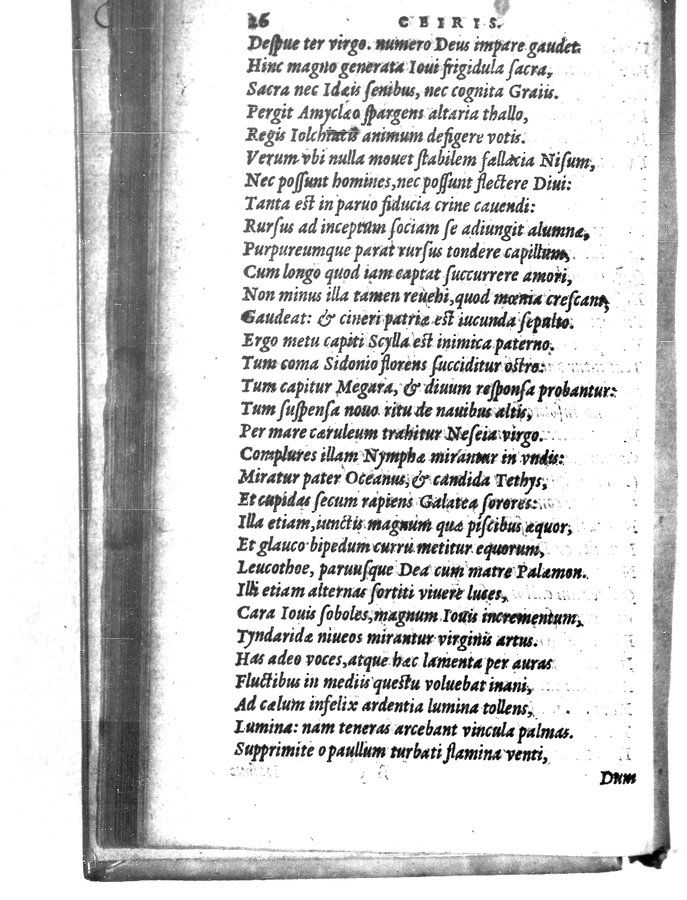 26 CEIRIS.
Despue ter virgo. numero Deus impare gaudet.
Hinc magno generata Ioui frigidula sacra,
Sacra nec Idæis senibus, nec cognita Graiis.
Pergit Amyclæo spargens altaria thallo,
Regis animum defigere votis.
Verum vbi nulla mouet stabilem fallacia Nisum,
Nec possunt homines, nec possunt flectere Diui:
Tanta est in paruo fiducia crine cauendi:
Rursus ad inceptum sociam se adiungit alumnæ,
Purpureumque parat rursus tondere capillum,
Cum longo quod iam captat succurrere amori,
Non minus illa tamen reuehi, quod mœnia crescant,
Gaudeat: & cineri patria est iucunda sepulto.
Ergo metu capiti Scylla est inimica paterno.
Tum coma Sidonio florens succiditur ostro:
Tum capitur Megara, & diuum responsa probantur:
Tum suspensa nouo ritu de nauibus altis,
Per mare cæruleum trahitur Neseia virgo.
Complures illam Nymphæ mirantur in vndis:
Miratur pater Oceanus, & candida Tethys,
Et cupidas secum rapiens Galatea sorores:
Illa etiam, iunctis magnum quæ piscibus æquor,
Et glauco bipedum curru metitur equorum,
Leucothoe, paruusque Dea cum matre Palæmon.
Illi etiam alternas sortiti viuere luces,
Cara Iouis soboles, magnum Iouis incrementum,
Tyndaridæ niueos mirantur virginis artus.
Has adeo voces, atque hæc lamenta per auras
Fluctibus in mediis questu voluebat inani,
Ad cælum infelix ardentia lumina tollens,
Lumina: nam teneras arcebant vincula palmas.
Supprimite o paullum turbati flamina venti,
Dum